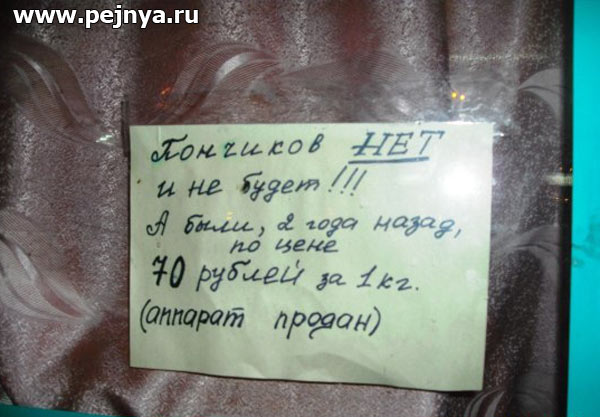 www.pejnya.ru
Пончиков НЕТ
и не будет!!!
А были, 2 года назад,
по цене
70 рублей за 1 кг.
(аппарат продан)